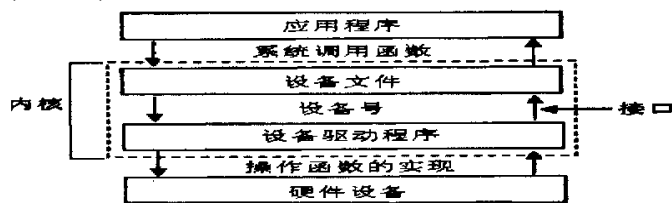 应用程序
系统调用函数
设备文件
内核
设备号
接口
设备驱动程序
操作函数的实现
硬件设备